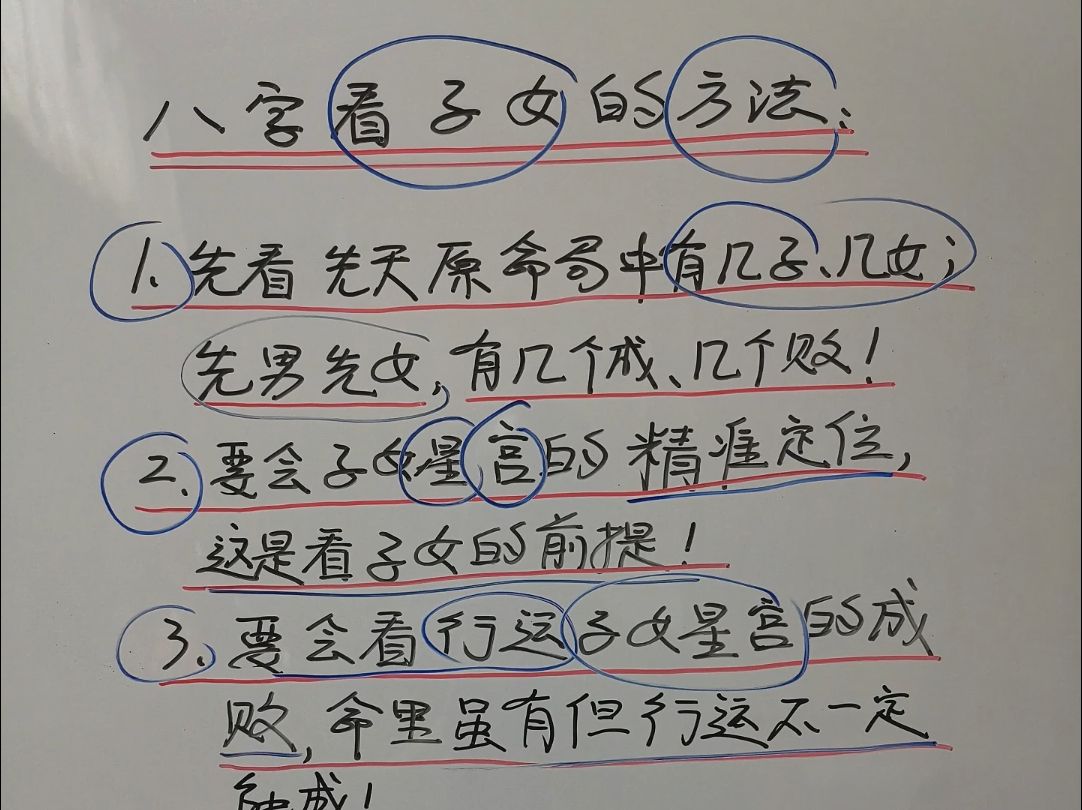 八字看子女的方法:
1、先看先天原命局中有几子、几女;
先男先女,有几个成、几个败!
2、要会子女星宫的精准定位,
这是看子女的前提!
3、要会看行运子女星宫的成
败,命里虽有但行运不一定
能成!